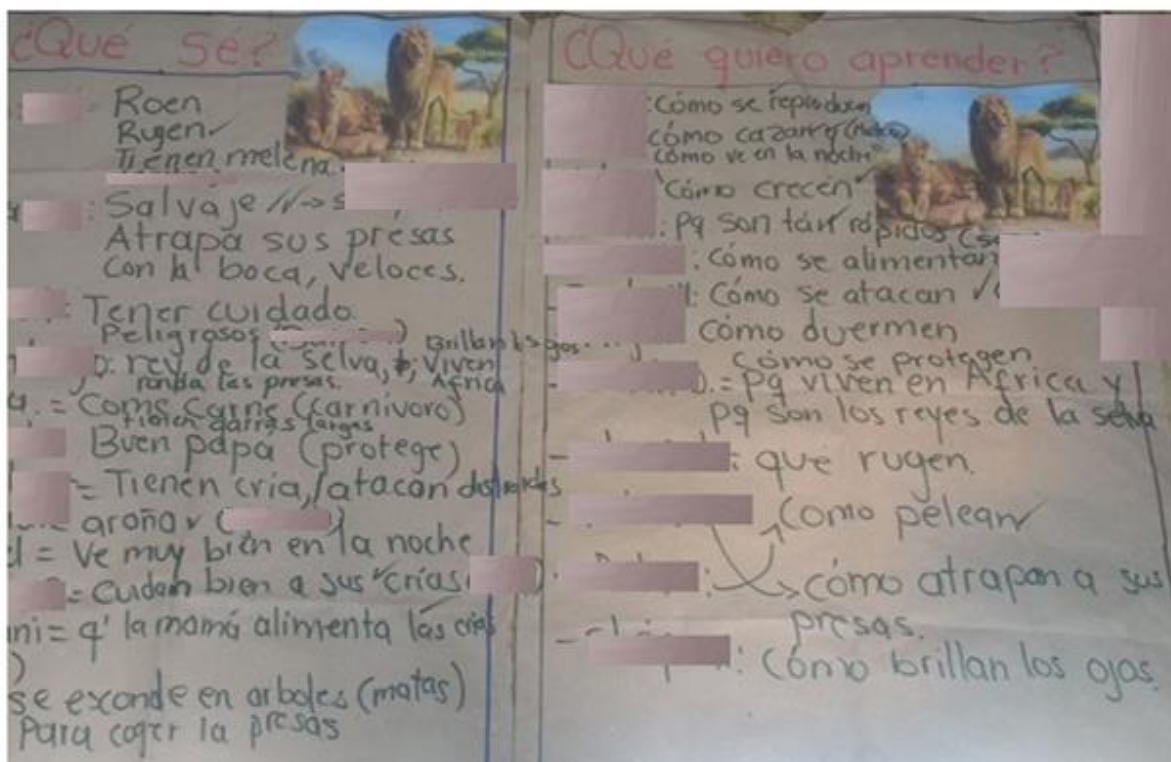 ¿Qué Sé?
Roen
Rugen
Tienen melena.
: Salvaje
Atrapa sus presas
con la boca, veloces.
: Tener cuidado.
Peligrosos
Brillan los ojos.
: rey de la selva, Viven
ronda las presas. Africa
= Come carne (carnivoro)
tienen garras largas
Buen papá (protege)
= Tienen cria, / atacan
araña
= Ve muy bien en la noche
= Cuidan bien a sus crías
= q' la mamá alimenta las crias
se exonde en arboles (matas)
Para coger la presas
¿Qué quiero aprender?
: Cómo se reproducen
cómo cazan y
cómo ve en la noche
Cómo crecen
: Pq son tan rápidos
: Cómo se alimentan
: Cómo se atacan
cómo duermen
Cómo se protegen
= Pq viven en Africa y
Pq son los reyes de la selva
: que rugen.
Como pelean
: cómo atrapan a sus
presas.
: Cómo brillan los ojos.